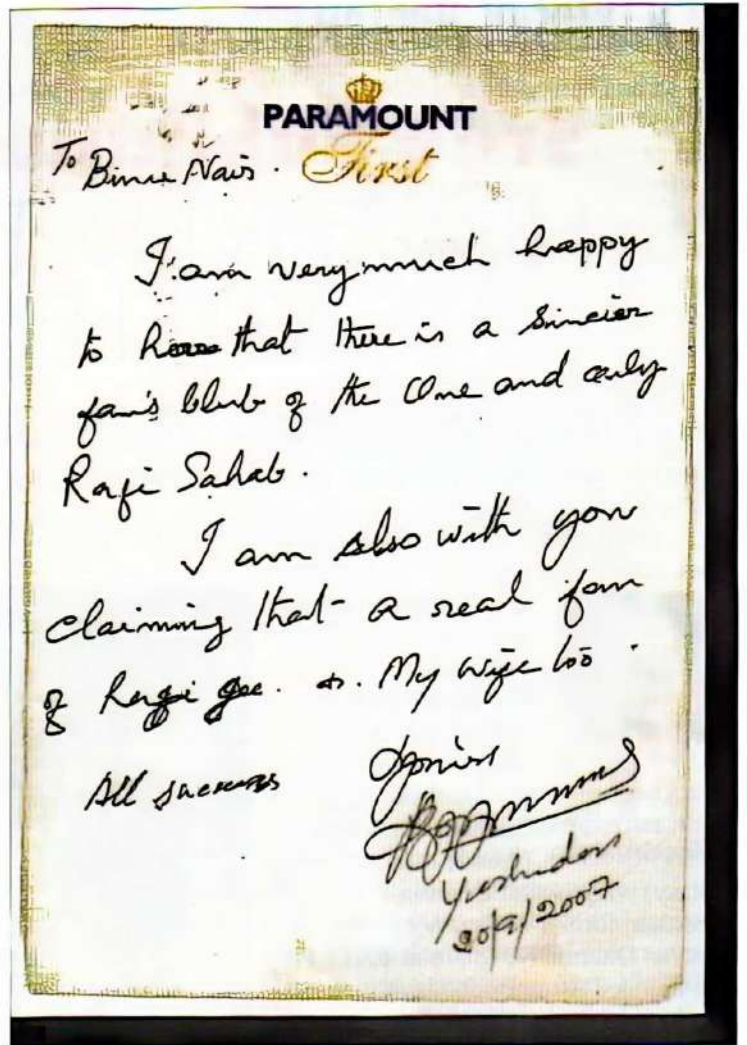 PARAMOUNT
First
To Binu Nair.
I am very much happy
to know that there is a sincier
fan's Club of the One and only
Rafi Sahab.
I am also with you
claiming that a real fan
of Rafi gee. &. My wife too.
All success
Yesudas
20/9/2007